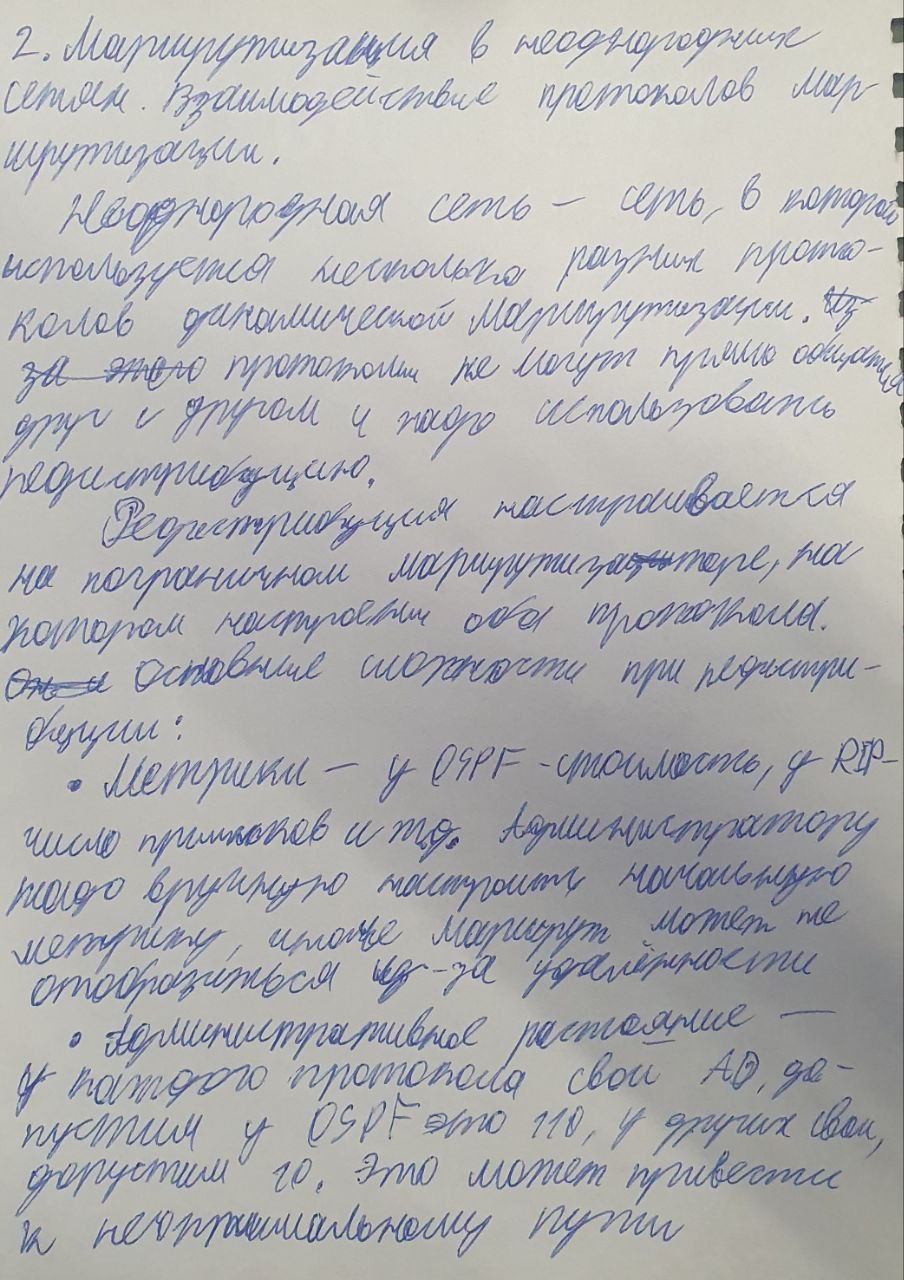 2. Маршрутизация в неоднородных
сетях. Взаимодействие протоколов мар-
шрутизации.
Неоднородная сеть – сеть, в которой
используется несколько разных прото-
колов динамической маршрутизации. Из
за этого протоколы не могут прямо общаться
друг с другом и надо использовать
редистрибуцию.
Редистрибуция настраивается
на пограничном маршрутизаторе, на
котором настроены оба протокола.
Основные сложности при редистри-
буции:
• Метрики – у OSPF - стоимость, у RIP -
число прыжков и тд. Администратору
надо вручную настроить начальную
метрику, иначе маршрут может не
отобразиться из-за удалённости
• Административное растояние —
у каждого протокола свой AD, до-
пустим у OSPF это 110, у других свои,
допустим 10. Это может привести
к неоптимальному пути